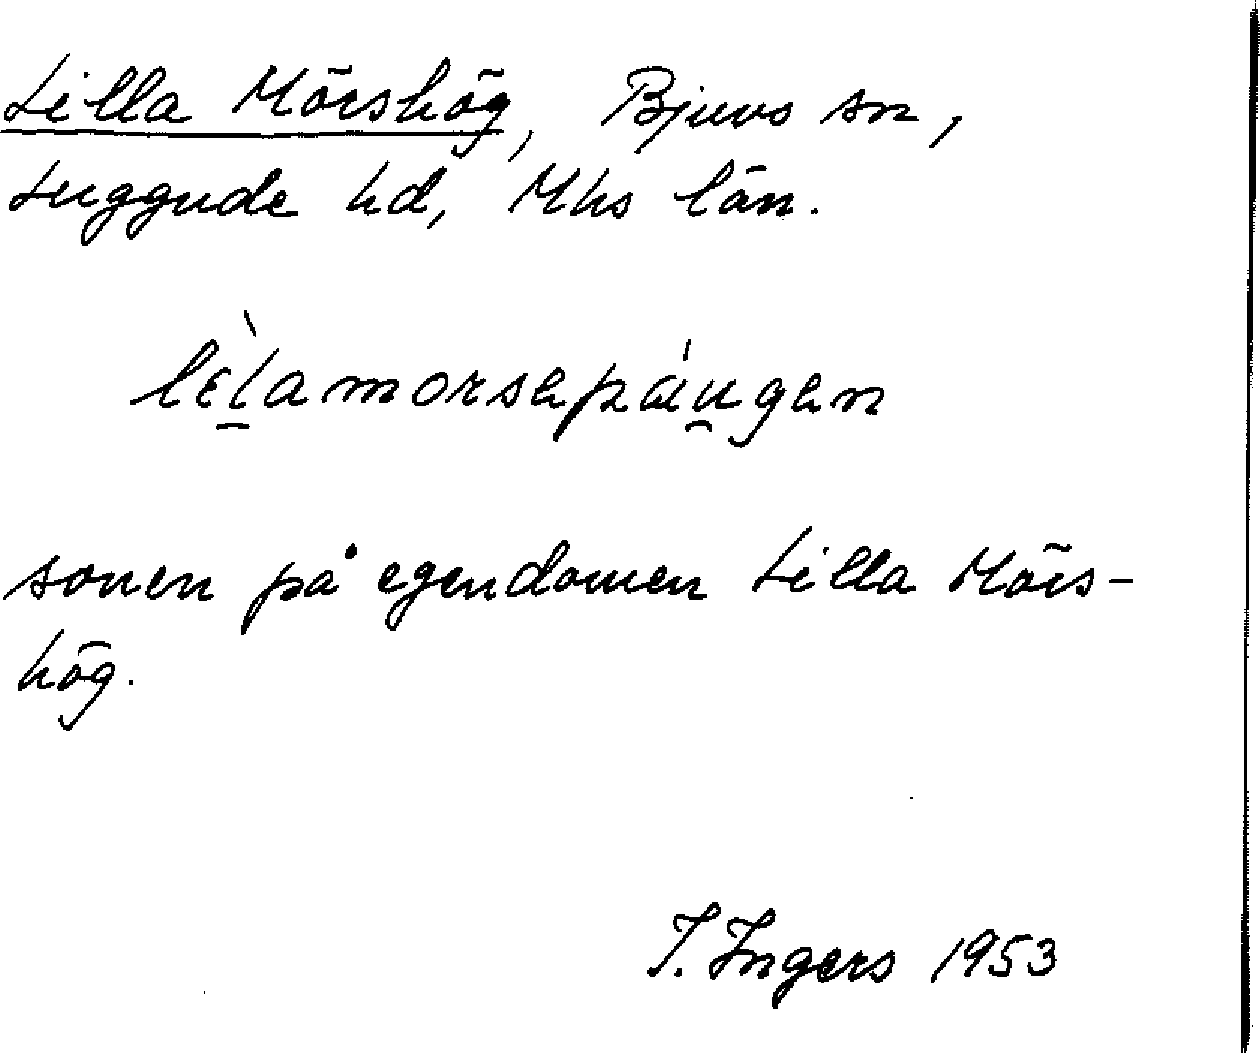 Lilla Mörshög, Bjuvs sn,
Luggude hd, Mhs län.
lɛ̀l̠amorsapáu̯gen
sonen på egendomen Lilla Mörs-
hög.
I. Ingers 1953